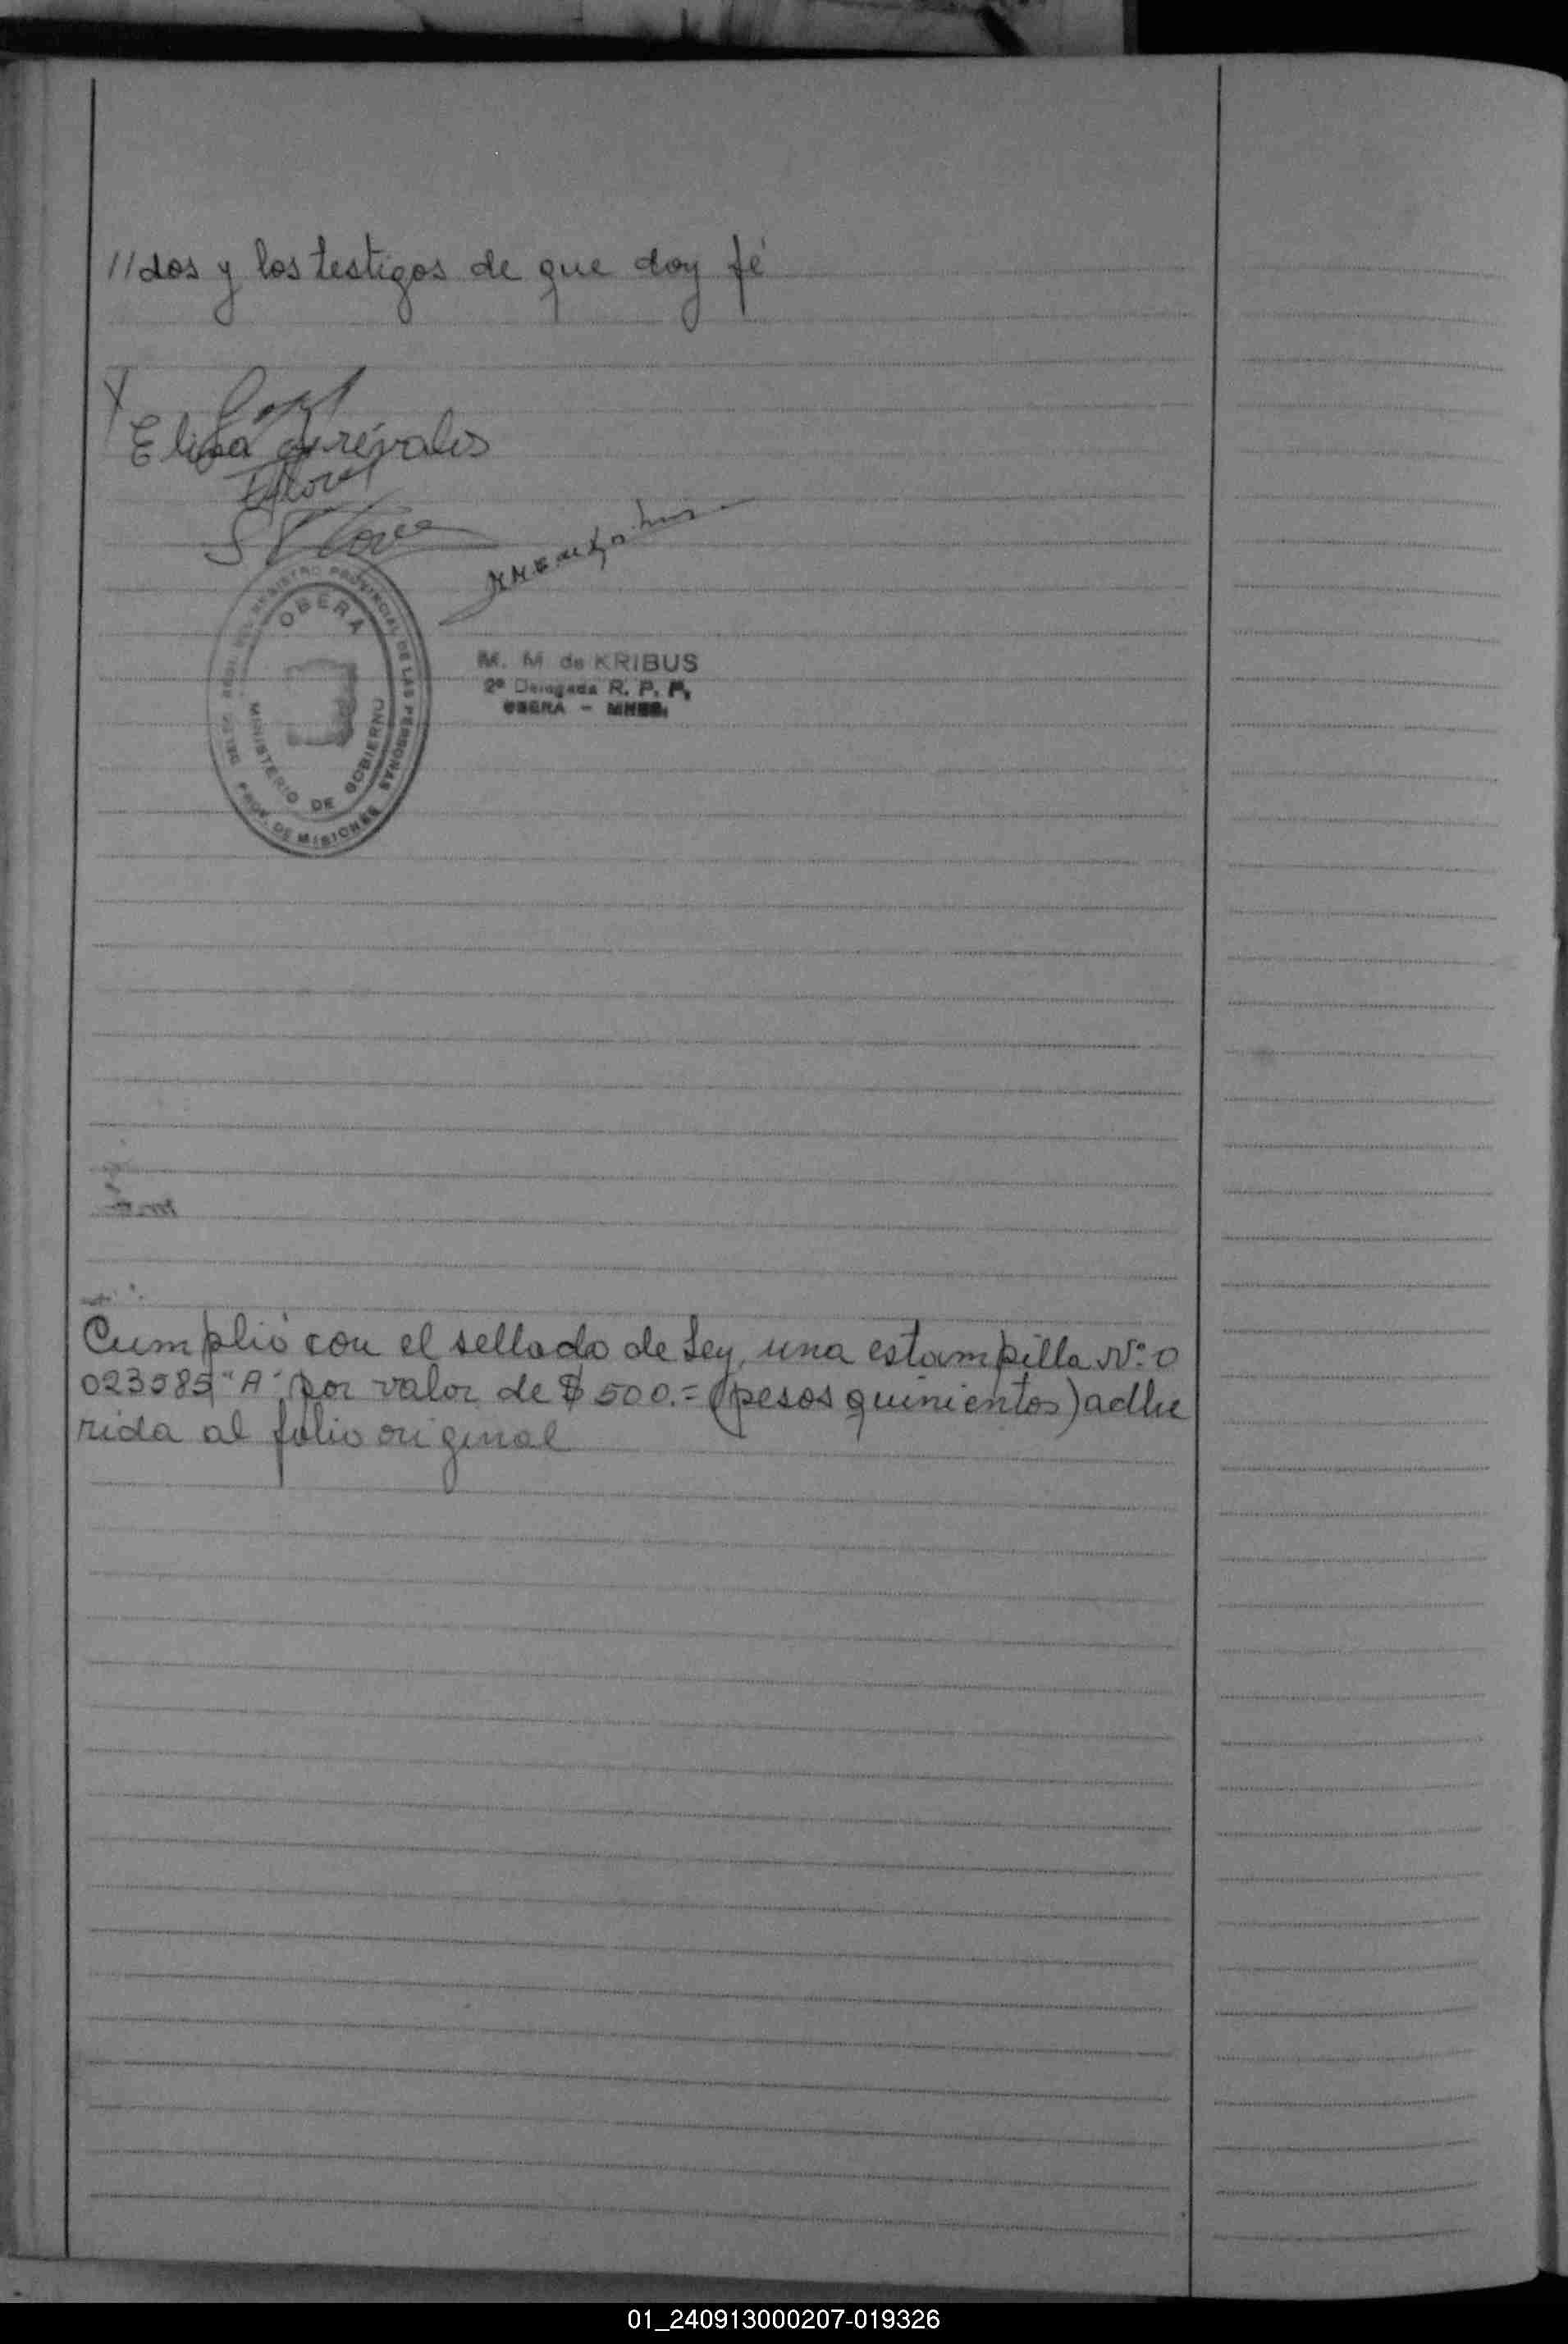 //dos y los testigos de que doy fé
Elisa
S
OBERA
REGISTRO PROVINCIAL DE LAS PERSONAS
MINISTERIO DE GOBIERNO
PROV. DE MISIONES
M. M de KRIBUS
2ª Delegada R. P. P.
OBERA - MNES.
Cumplió con el sellado de Ley, una estampilla Nº 0
023585 "A" por valor de $ 500.= (pesos quinientos) adhe
rida al folio original
01_240913000207-019326